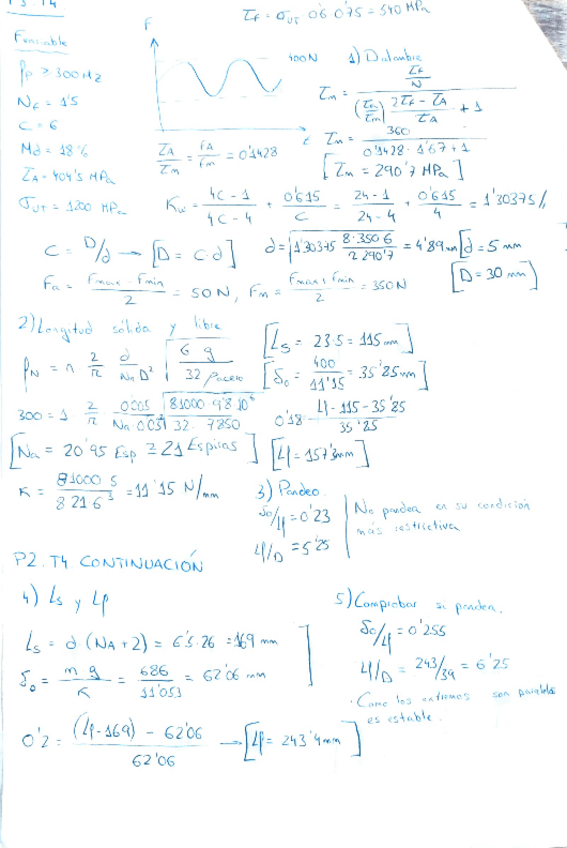 P3. T4
τ_F = σ_UT 0'6 0'75 = 540 MPa
Fensiable
F
400N
t
f_p ≥ 300 Hz
N_F = 1'5
C = 6
Md = 18%
τ_A = 404'5 MPa
σ_UT = 1200 MPa
τ_A/τ_m = F_A/F_m = 0'1428
1) D alambre
τ_m = (τ_F/N) / ((τ_a/τ_m) (2τ_F - τ_A)/τ_A + 1)
τ_m = 360 / (0'1428 · 1'67 + 1)
[τ_m = 290'7 MPa]
K_w = (4C - 1)/(4C - 4) + 0'615/C = (24 - 1)/(24 - 4) + 0'615/4 = 1'30375 //
C = D/d → [D = C·d]
d = √(1'30375 (8·350 6)/(π 290'7)) = 4'89 mm [d = 5 mm
[D = 30 mm)
F_a = (F_max - F_min)/2 = 50N, F_m = (F_max + F_min)/2 = 350N
2) Longitud sólida y libre
f_N = n 2/π d/(N_a D²) √(G g/(32 ρ acero))
300 = 1 2/π 0'005/(Na 0'03²) √(81000·9'8·10⁶/(32· 7850))
[Na = 20'95 Esp ≅ 21 Espiras]
K = 81000 5/(8 21 6³) = 11'15 N/mm
[L_s = 23·5 = 115 mm]
[δ_0 = 400/11'15 = 35'25 mm]
0'18 = (Lf - 115 - 35'25)/35'25
[Lf = 157'3mm]
3) Pandeo.
δ_0/Lf = 0'23
Lf/D = 5'25
No pandea en su condición
más restrictiva
P2. T4 CONTINUACIÓN
4) Ls y Lf
L_s = d (N_A + 2) = 6'5·26 = 169 mm
δ_0 = m g/K = 686/11'053 = 62'06 mm
0'2 = ((Lf - 169) - 62'06)/62'06 → [Lf = 243'4mm]
5) Comprobar si pandea.
δ_0/Lf = 0'255
Lf/D = 243/39 = 6'25
· Como los extremos son paralelos
es estable.